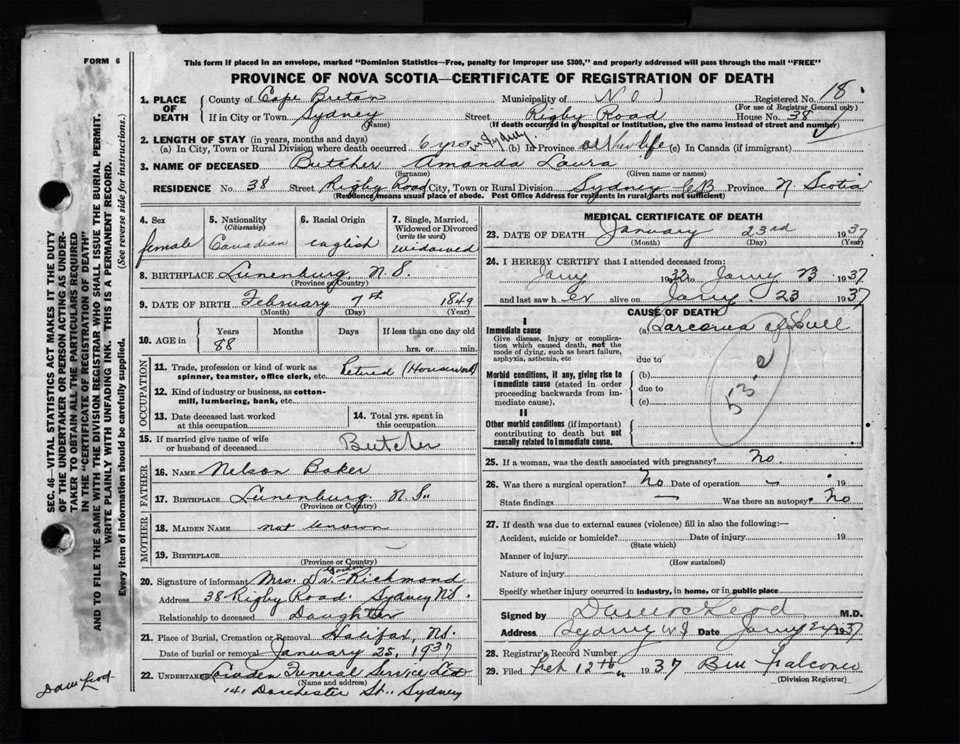 FORM 6
This form if placed in an envelope, marked "Dominion Statistics—Free, penalty for improper use $300," and properly addressed will pass through the mail "FREE"
PROVINCE OF NOVA SCOTIA—CERTIFICATE OF REGISTRATION OF DEATH
SEC. 46—VITAL STATISTICS ACT MAKES IT THE DUTY
OF THE UNDERTAKER OR PERSON ACTING AS UNDER-
TAKER TO OBTAIN ALL THE PARTICULARS REQUIRED
IN THE "CERTIFICATE OF REGISTRATION OF DEATH"
AND TO FILE THE SAME WITH THE DIVISION REGISTRAR WHO SHALL ISSUE THE BURIAL PERMIT.
WRITE PLAINLY WITH UNFADING INK. THIS IS A PERMANENT RECORD.
Every item of information should be carefully supplied. (See reverse side for instructions.)
1. PLACE OF DEATH County of Cape Breton Municipality of No 1 Registered No. 18
(For use of Registrar General only)
If in City or Town Sydney Street Rigby Road House No. 38
(Name) (If death occurred in a hospital or institution, give the name instead of street and number)
2. LENGTH OF STAY (in years, months and days)
(a) In City, Town or Rural Division where death occurred 6 yrs Sydney (b) In Province all her life (c) In Canada (if immigrant)
3. NAME OF DECEASED Butcher Amanda Laura
(Surname) (Given name or names)
RESIDENCE No. 38 Street Rigby Road City, Town or Rural Division Sydney CB Province N Scotia
(Residence means usual place of abode. Post Office Address for residents in rural parts not sufficient)
4. Sex female
5. Nationality (Citizenship) Canadian
6. Racial Origin english
7. Single, Married, Widowed or Divorced (write the word) widowed
8. BIRTHPLACE Lunenburg, N.S.
(Province or Country)
9. DATE OF BIRTH February 7th 1849
(Month) (Day) (Year)
10. AGE in Years Months Days If less than one day old
88 hrs. or min.
OCCUPATION
11. Trade, profession or kind of work as spinner, teamster, office clerk, etc. Retired (Housework)
12. Kind of industry or business, as cotton-mill, lumbering, bank, etc.
13. Date deceased last worked at this occupation
14. Total yrs. spent in this occupation
15. If married give name of wife or husband of deceased Butcher
FATHER
16. NAME Nelson Baker
17. BIRTHPLACE Lunenburg N.S.
(Province or Country)
MOTHER
18. MAIDEN NAME not known
19. BIRTHPLACE
(Province or Country)
20. Signature of informant Mrs. Richmond
Address 38 Rigby Road Sydney N.S.
Relationship to deceased Daughter
21. Place of Burial, Cremation or Removal Halifax, N.S.
Date of burial or removal January 25, 1937
22. UNDERTAKER Funeral Service Ltd
(Name and address)
141 Dorchester St., Sydney
MEDICAL CERTIFICATE OF DEATH
23. DATE OF DEATH January 23rd 1937
(Month) (Day) (Year)
24. I HEREBY CERTIFY that I attended deceased from:
Jany 1932 to Jany 23 1937
and last saw her alive on Jany. 23 1937
CAUSE OF DEATH
I
Immediate cause (a) Sarcoma of Skull
Give disease, injury or complication which caused death, not the mode of dying, such as heart failure, asphyxia, asthenia, etc
due to
Morbid conditions, if any, giving rise to immediate cause (stated in order proceeding backwards from immediate cause).
(b)
due to
(c)
53.e
II
Other morbid conditions (if important) contributing to death but not causally related to immediate cause.
25. If a woman, was the death associated with pregnancy? No.
26. Was there a surgical operation? No Date of operation — 19
State findings — Was there an autopsy? No
27. If death was due to external causes (violence) fill in also the following:—
Accident, suicide or homicide? Date of injury 19
(State which)
Manner of injury
(How sustained)
Nature of injury
Specify whether injury occurred in industry, in home, or in public place
Signed by Dan McLeod M.D.
Address Sydney N.S Date Jany 24 1937
28. Registrar's Record Number
29. Filed Feb 12th 1937 Falconer
(Division Registrar)